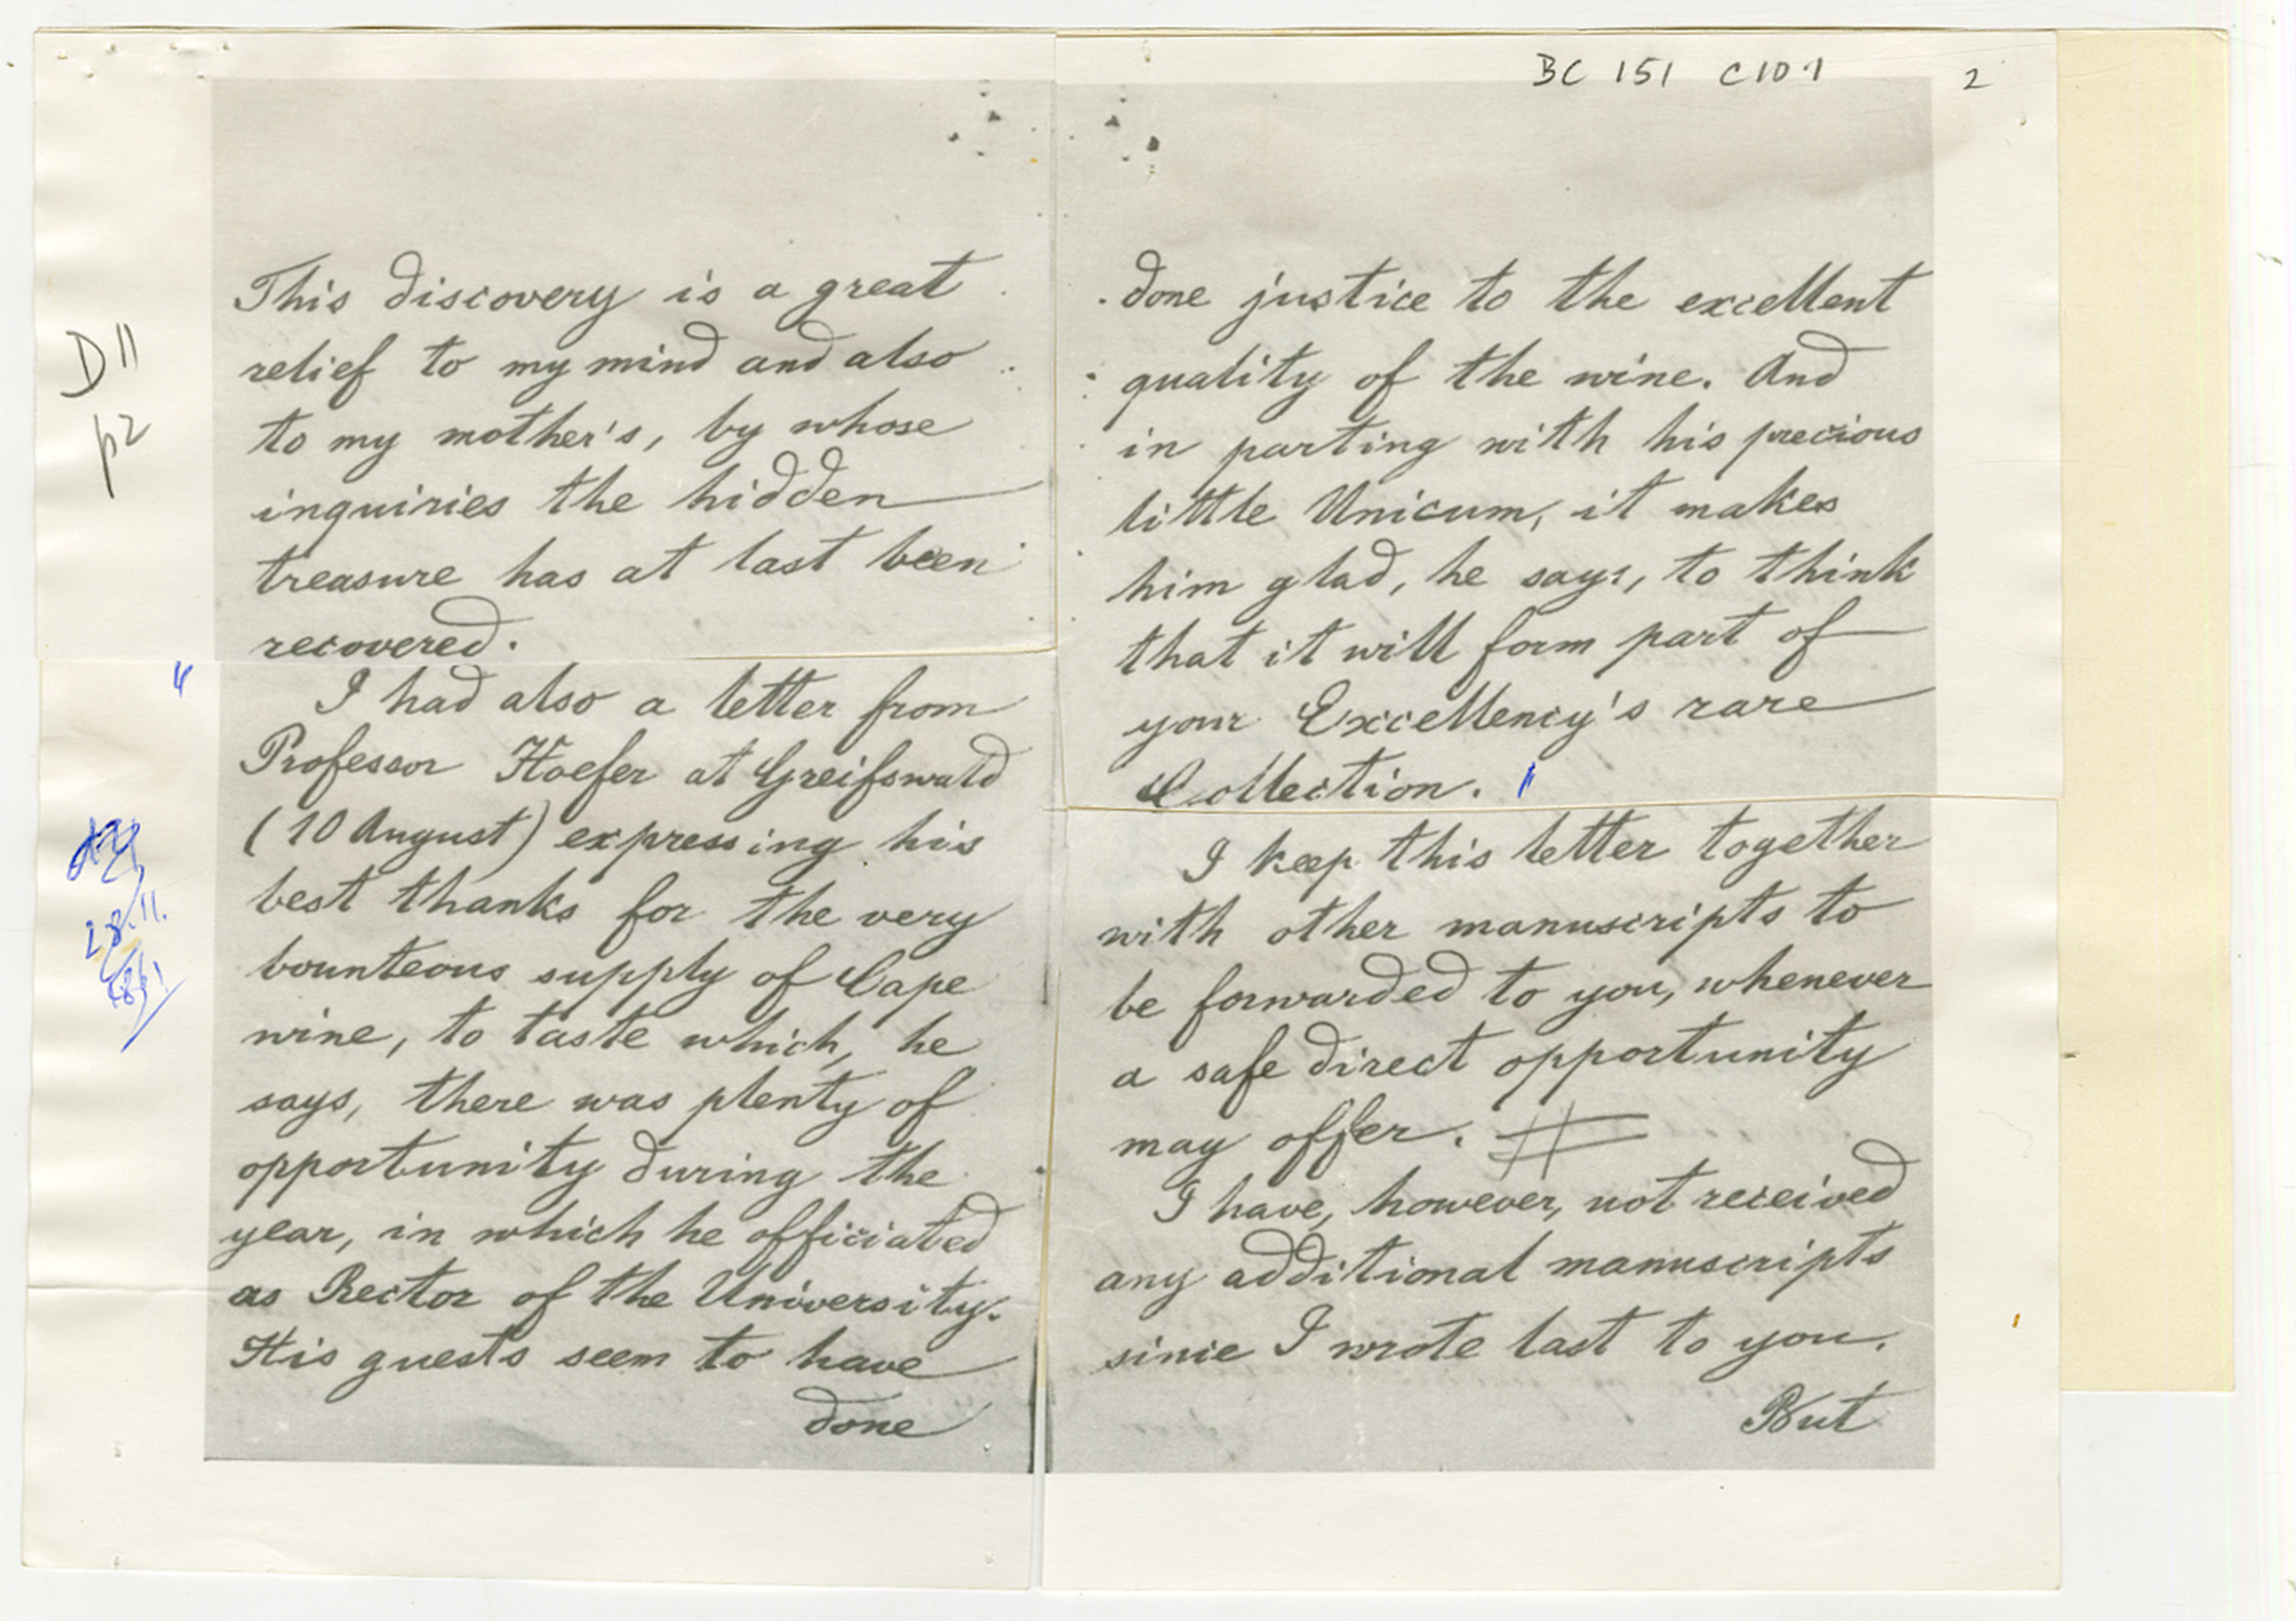 BC 151 C10.1
2
D11
p2
This discovery is a great
relief to my mind and also
to my mother's, by whose
inquiries the hidden
treasure has at last been
recovered.
"
I had also a letter from
Professor Hoefer at Greifswald
(10 August) expressing his
best thanks for the very
bounteous supply of Cape
wine, to taste which, he
says, there was plenty of
opportunity during the
year, in which he officiated
as Rector of the University.
His guests seem to have
done
28.11.
1861
done justice to the excellent
quality of the wine. And
in parting with his precious
little Unicum, it makes
him glad, he says, to think
that it will form part of
your Excellency's rare
Collection. "
I keep this letter together
with other manuscripts to
be forwarded to you, whenever
a safe direct opportunity
may offer. #
I have, however, not received
any additional manuscripts
since I wrote last to you.
But